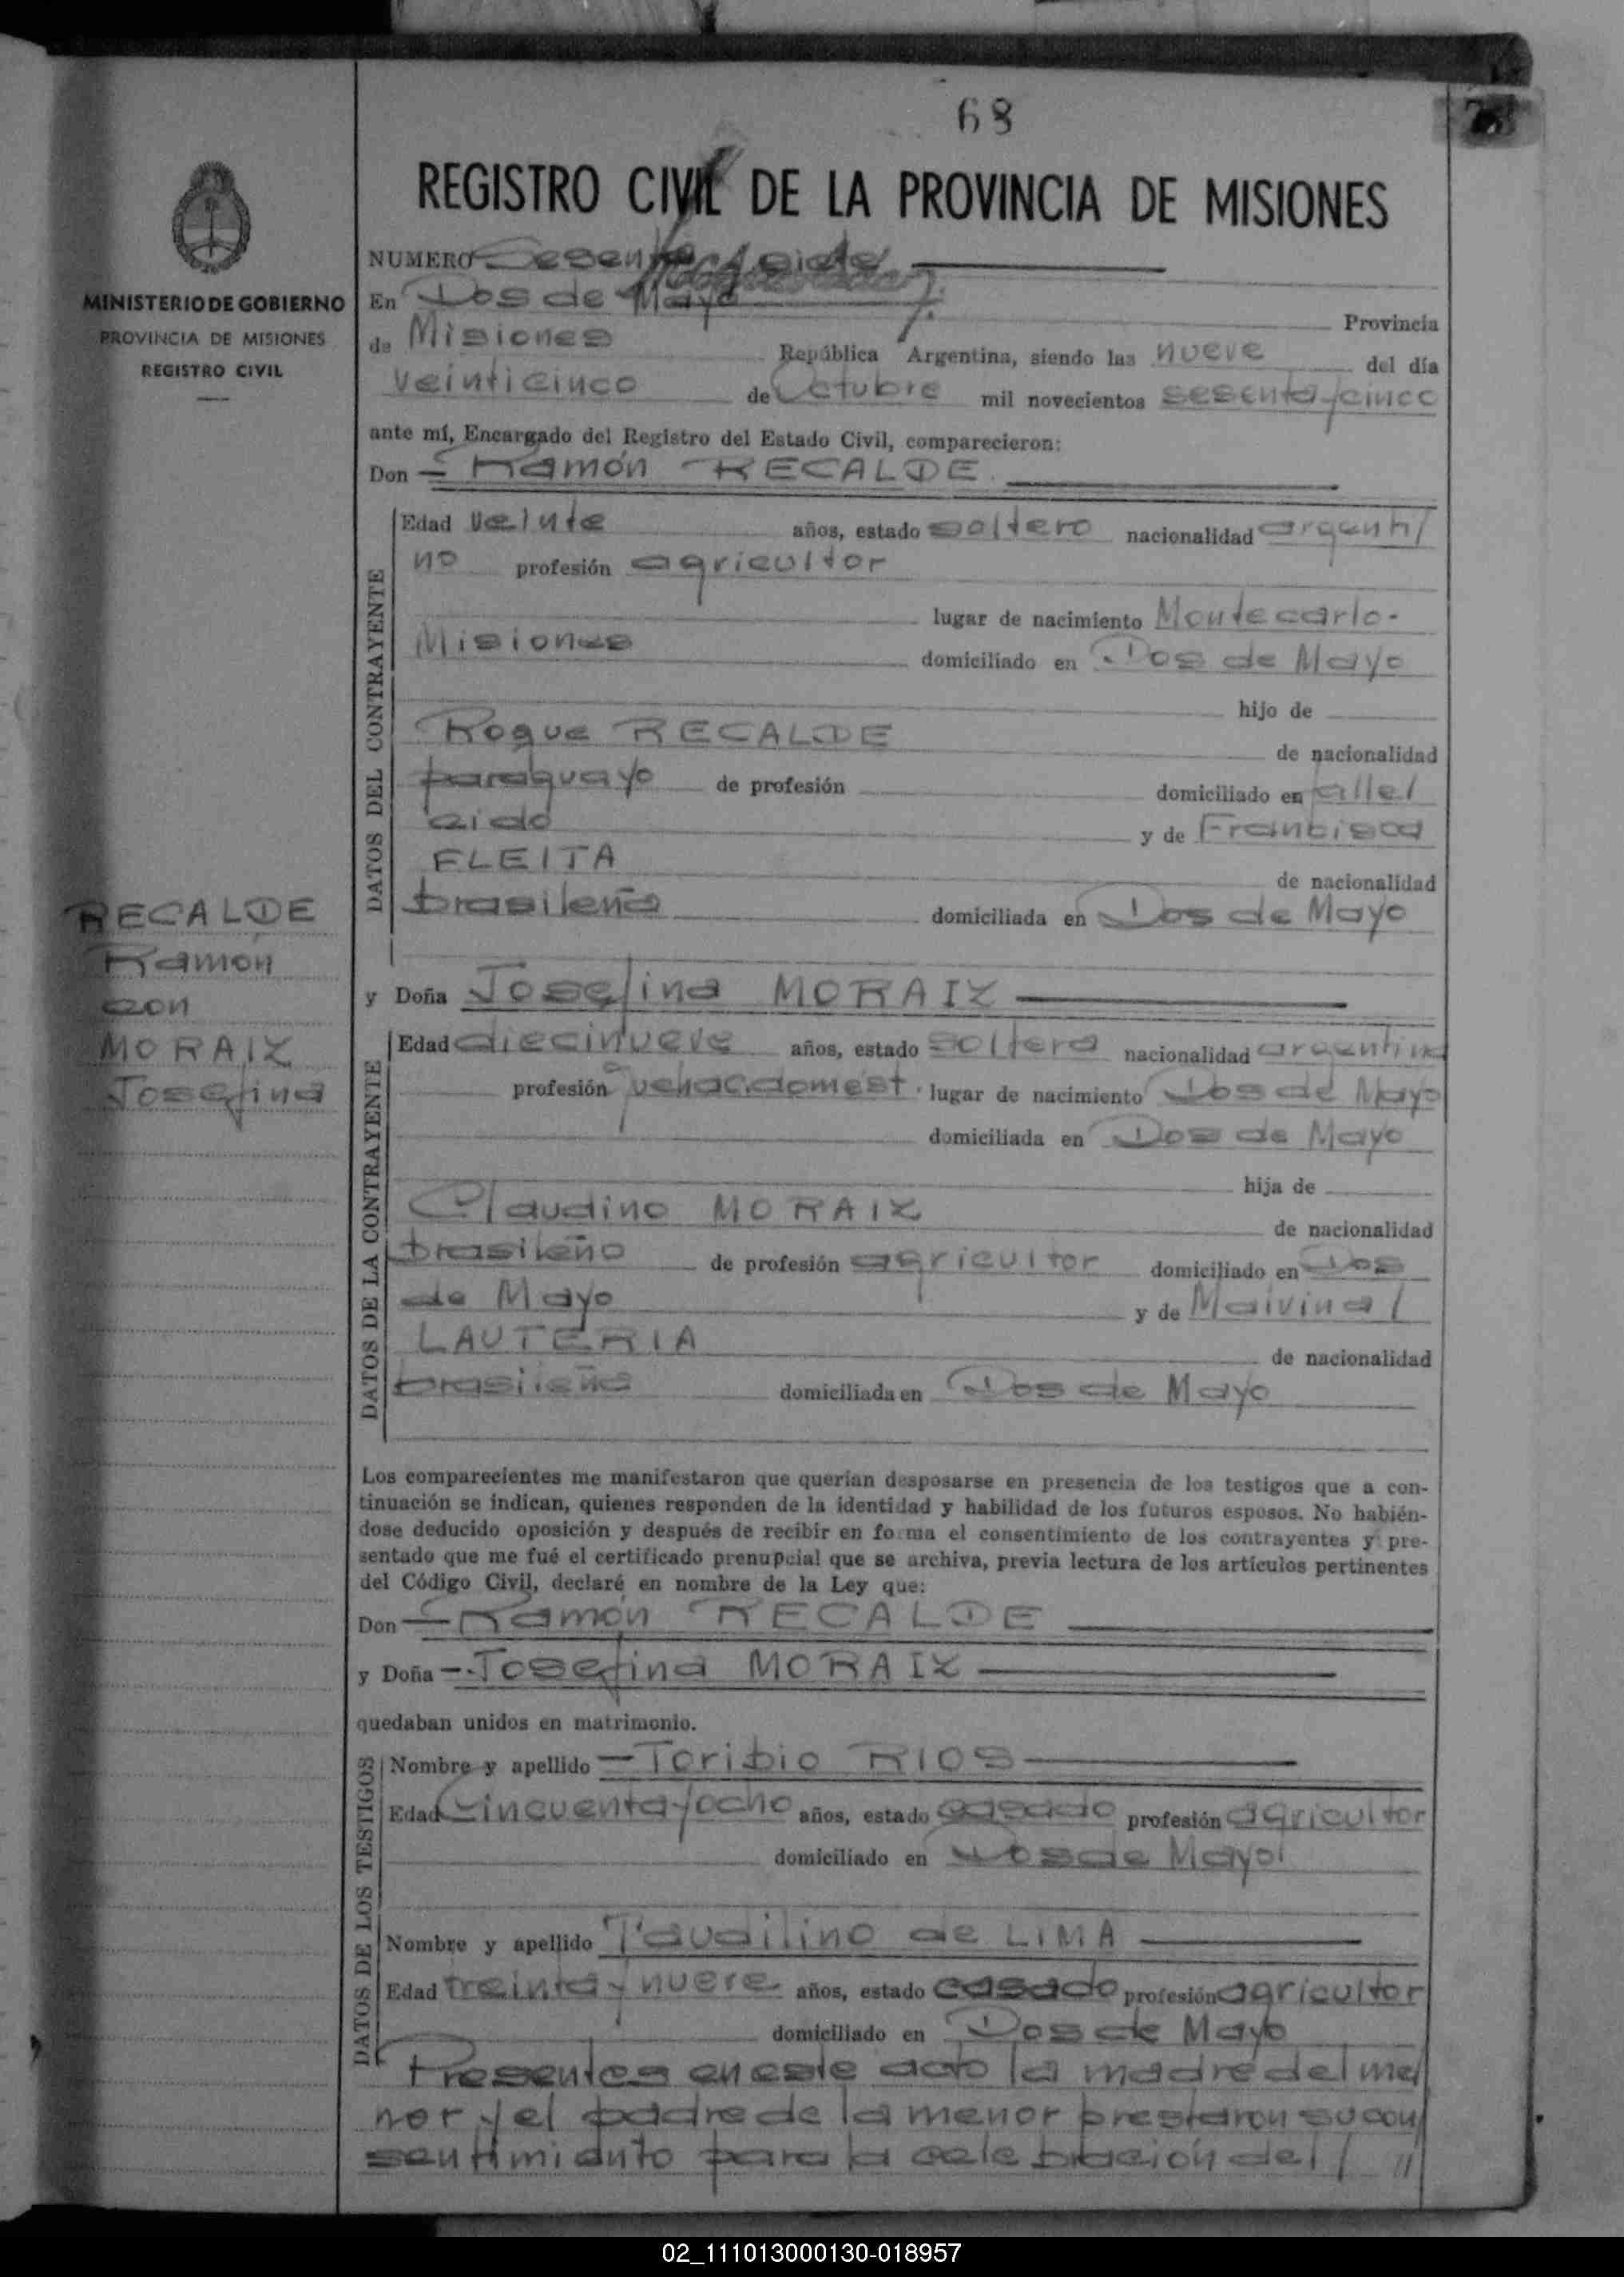 68
REGISTRO CIVIL DE LA PROVINCIA DE MISIONES
MINISTERIO DE GOBIERNO
PROVINCIA DE MISIONES
REGISTRO CIVIL
NUMERO Sesenta y siete
En Dos de Mayo
Provincia
de Misiones República Argentina, siendo las nueve del día
veinticinco de Octubre mil novecientos sesenta y cinco
ante mí, Encargado del Registro del Estado Civil, comparecieron:
Don Ramón RECALDE
DATOS DEL CONTRAYENTE
Edad veinte años, estado soltero nacionalidad argenti/
no profesión agricultor
lugar de nacimiento Montecarlo-
Misiones domiciliado en Dos de Mayo
hijo de
Roque RECALDE de nacionalidad
paraguayo de profesión domiciliado en allel
cido y de Francisca
FLEITA de nacionalidad
brasileña domiciliada en Dos de Mayo
RECALDE
Ramón
con
MORAIZ
Josefina
y Doña Josefina MORAIZ
DATOS DE LA CONTRAYENTE
Edad diecinueve años, estado soltera nacionalidad argentina
profesión quehac.domest. lugar de nacimiento Dos de Mayo
domiciliada en Dos de Mayo
hija de
Claudino MORAIZ de nacionalidad
brasileño de profesión agricultor domiciliado en Dos
de Mayo y de Malvina/
LAUTERIA de nacionalidad
brasileña domiciliada en Dos de Mayo
Los comparecientes me manifestaron que querían desposarse en presencia de los testigos que a con-
tinuación se indican, quienes responden de la identidad y habilidad de los futuros esposos. No habién-
dose deducido oposición y después de recibir en forma el consentimiento de los contrayentes y pre-
sentado que me fué el certificado prenupcial que se archiva, previa lectura de los artículos pertinentes
del Código Civil, declaré en nombre de la Ley que:
Don Ramón RECALDE
y Doña Josefina MORAIZ
quedaban unidos en matrimonio.
DATOS DE LOS TESTIGOS
Nombre y apellido Toribio RIOS
Edad Cincuenta y ocho años, estado casado profesión agricultor
domiciliado en Dos de Mayo
Nombre y apellido de LIMA
Edad treinta y nueve años, estado casado profesión agricultor
domiciliado en Dos de Mayo
Presentes en este acto la madre del me/
nor y el padre de la menor prestaron su con/
sentimiento para la celebración del / //
02_111013000130-018957